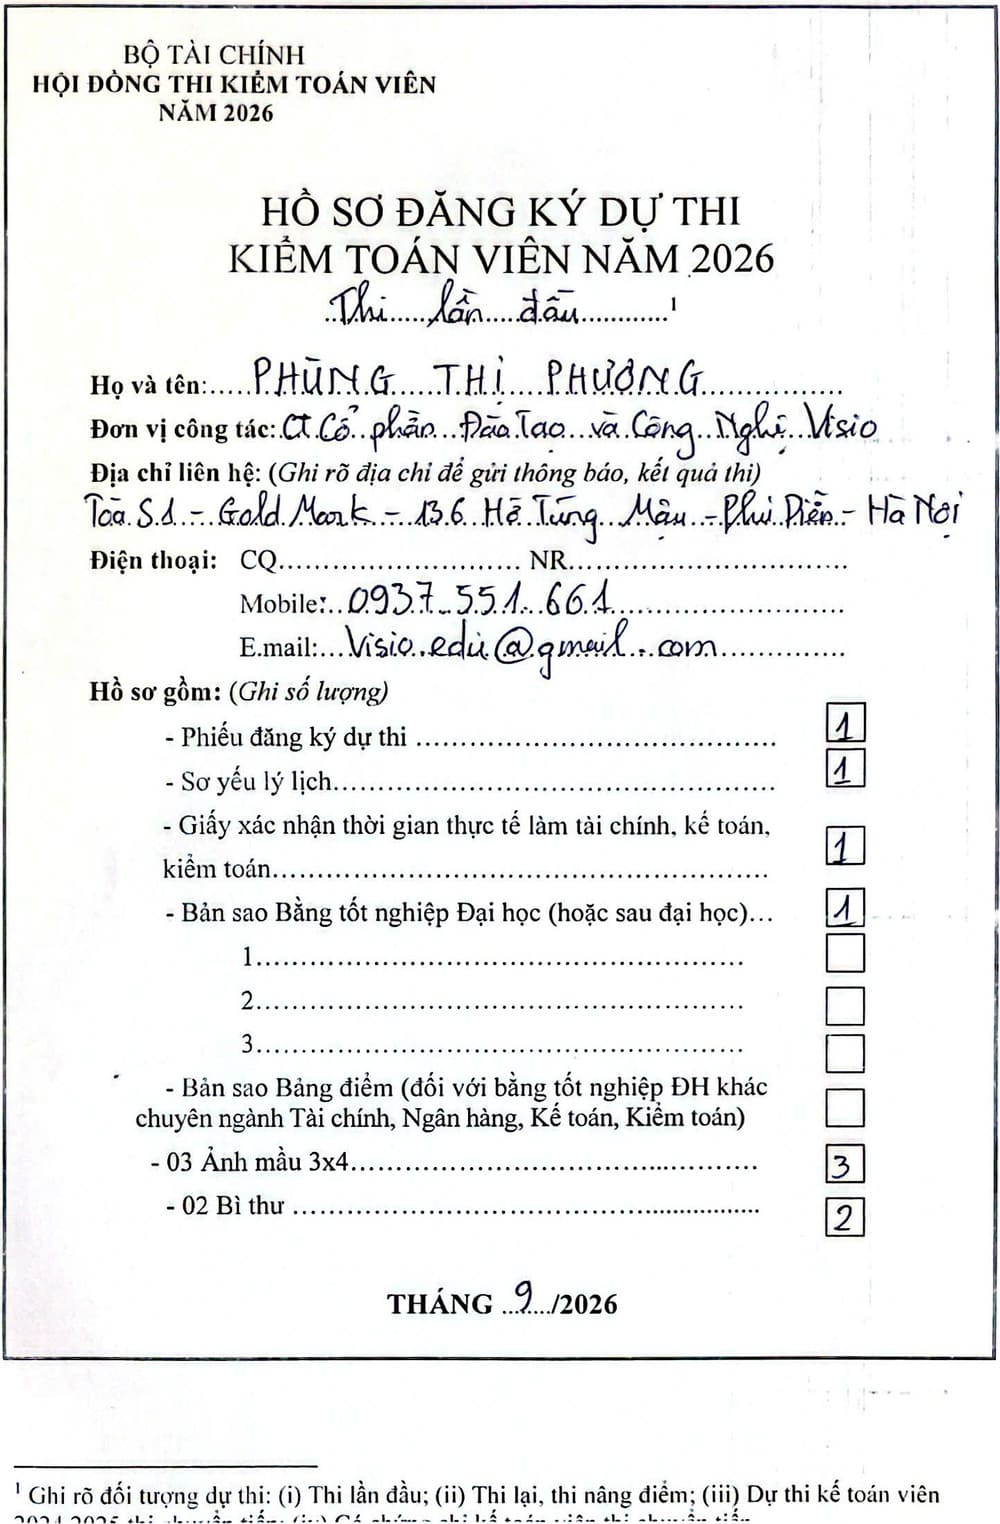 BỘ TÀI CHÍNH
HỘI ĐỒNG THI KIỂM TOÁN VIÊN
NĂM 2026
HỒ SƠ ĐĂNG KÝ DỰ THI
KIỂM TOÁN VIÊN NĂM 2026
Thi lần đầu ¹
Họ và tên: PHÙNG THỊ PHƯƠNG
Đơn vị công tác: CT Cổ phần Đào Tạo và Công Nghệ Visio
Địa chỉ liên hệ: (Ghi rõ địa chỉ để gửi thông báo, kết quả thi)
Tòa S1 - Gold Mark - 136 Hồ Tùng Mậu - Phú Diễn - Hà Nội
Điện thoại: CQ........................ NR........................
Mobile: 0937 551 661
E.mail: Visio.edu@gmail.com
Hồ sơ gồm: (Ghi số lượng)
- Phiếu đăng ký dự thi ........................ 1
- Sơ yếu lý lịch........................ 1
- Giấy xác nhận thời gian thực tế làm tài chính, kế toán,
kiểm toán........................ 1
- Bản sao Bằng tốt nghiệp Đại học (hoặc sau đại học)... 1
1........................
2........................
3........................
- Bản sao Bảng điểm (đối với bằng tốt nghiệp ĐH khác
chuyên ngành Tài chính, Ngân hàng, Kế toán, Kiểm toán)
- 03 Ảnh mầu 3x4........................ 3
- 02 Bì thư ........................ 2
THÁNG 9/2026
¹ Ghi rõ đối tượng dự thi: (i) Thi lần đầu; (ii) Thi lại, thi nâng điểm; (iii) Dự thi kế toán viên